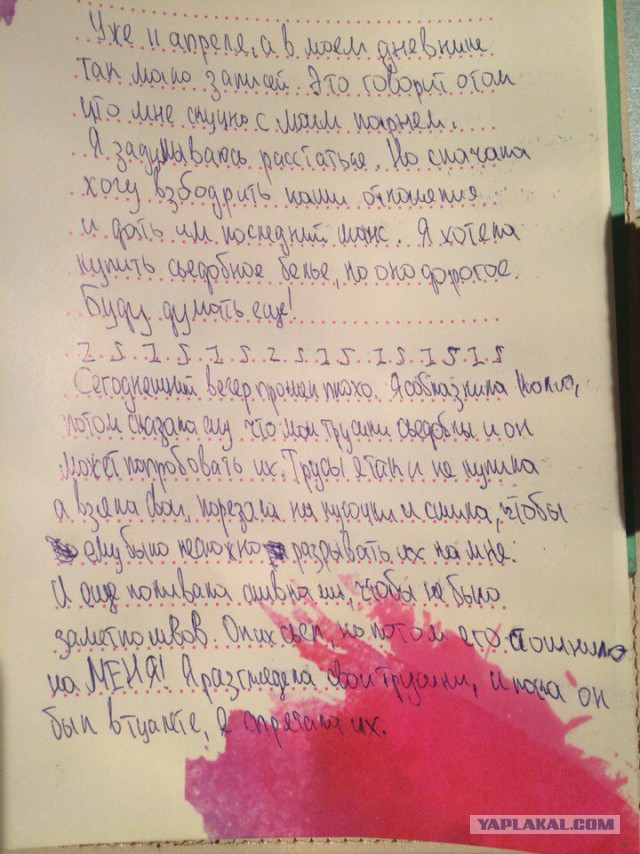 Уже 11 апреля, а в моем дневнике
так мало записей. Это говорит о том
что мне скучно с моим парнем.
Я задумываюсь расстаться. Но сначала
хочу взбодрить наши отношения
и дать им последний шанс. Я хотела
купить сьедобное белье, но оно дорогое.
Буду думать еще!
Сегоднешний вечер прошел плохо. Я соблазнила Колю,
потом сказала ему что мои трусики сьедобны и он
может попробовать их. Трусы я так и не купила
а взяла свои, порезала на кусочки и сшила, чтобы
ему было несложно раздрывать их на мне.
И еще поливала сливками, чтобы не было
заметно швов. Он их сьел, но потом его стошнило
на МЕНЯ! Я разглядела свои трусики, и пока он
был в туалете, я спрятала их.
YAPLAKAL.COM